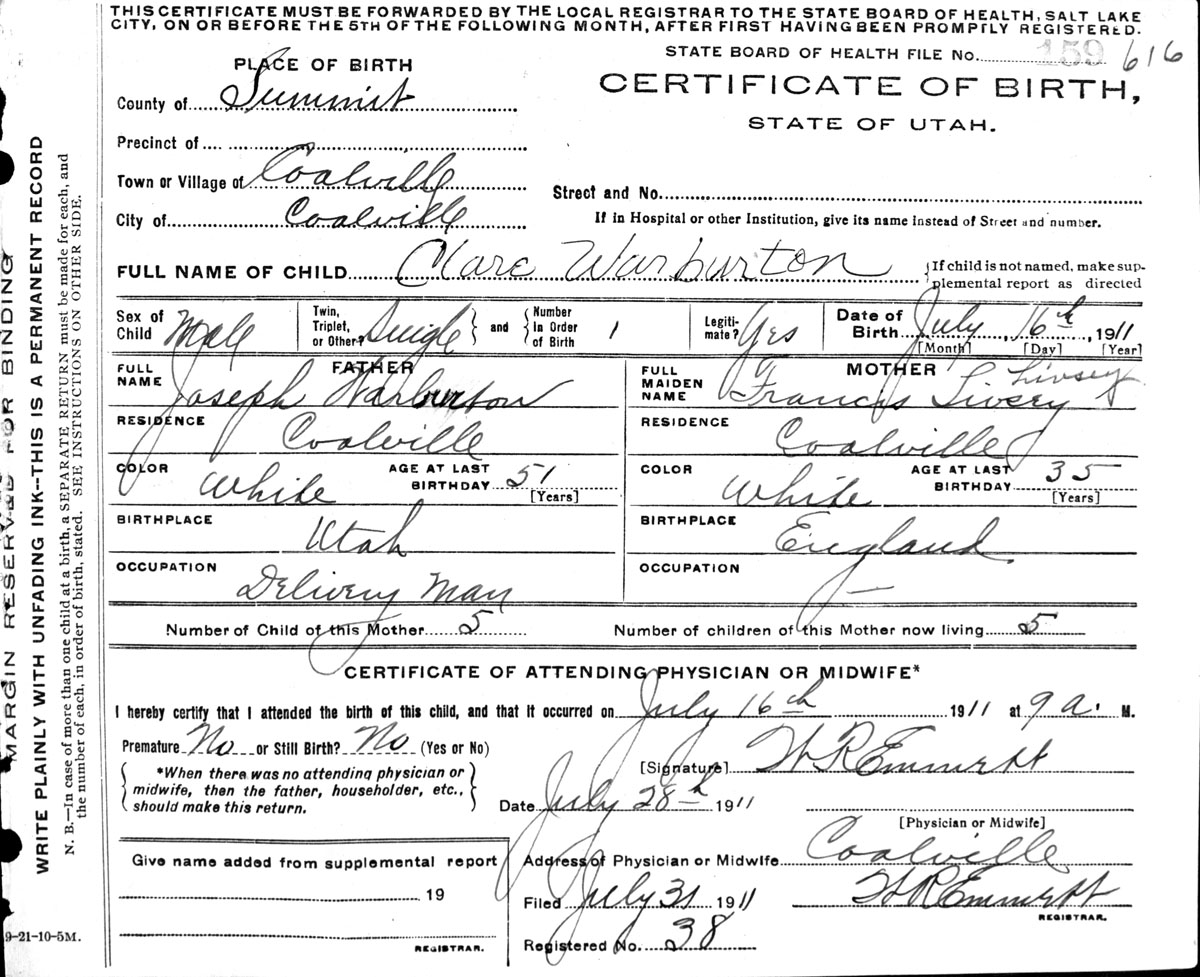 THIS CERTIFICATE MUST BE FORWARDED BY THE LOCAL REGISTRAR TO THE STATE BOARD OF HEALTH, SALT LAKE
CITY, ON OR BEFORE THE 5TH OF THE FOLLOWING MONTH, AFTER FIRST HAVING BEEN PROMPTLY REGISTERED.
STATE BOARD OF HEALTH FILE No. 159 616
PLACE OF BIRTH
CERTIFICATE OF BIRTH,
STATE OF UTAH.
County of Summit
Precinct of
Town or Village of Coalville
Street and No.
City of Coalville
If in Hospital or other Institution, give its name instead of Street and number.
FULL NAME OF CHILD Clare Warburton {If child is not named, make sup-
plemental report as directed
Sex of Child Male Twin, Triplet, or Other? Single } and { Number In Order of Birth 1 Legiti- mate? Yes Date of Birth July, 16th, 1911
[Month] [Day] [Year]
FATHER
FULL NAME Joseph Warburton
RESIDENCE Coalville
COLOR White AGE AT LAST BIRTHDAY 51 [Years]
BIRTHPLACE Utah
OCCUPATION Delivery Man
MOTHER
FULL MAIDEN NAME Francis Livsey L. Livsey
RESIDENCE Coalville
COLOR White AGE AT LAST BIRTHDAY 35 [Years]
BIRTHPLACE England
OCCUPATION —
Number of Child of this Mother 5 Number of children of this Mother now living 5
CERTIFICATE OF ATTENDING PHYSICIAN OR MIDWIFE*
I hereby certify that I attended the birth of this child, and that it occurred on July 16th 1911 at 9 a. M.
Premature No or Still Birth? No (Yes or No)
{ *When there was no attending physician or
midwife, then the father, householder, etc.,
should make this return. }
[Signature] W R Emmett
Date July 28th 1911
[Physician or Midwife]
Give name added from supplemental report
19
REGISTRAR.
Address of Physician or Midwife Coalville
Filed July 31 1911 W R Emmett
REGISTRAR.
Registered No. 38
9-21-10-5M.
MARGIN RESERVED FOR BINDING
WRITE PLAINLY WITH UNFADING INK--THIS IS A PERMANENT RECORD
N. B.—In case of more than one child at a birth, a SEPARATE RETURN must be made for each, and
the number of each, in order of birth, stated. SEE INSTRUCTIONS ON OTHER SIDE.